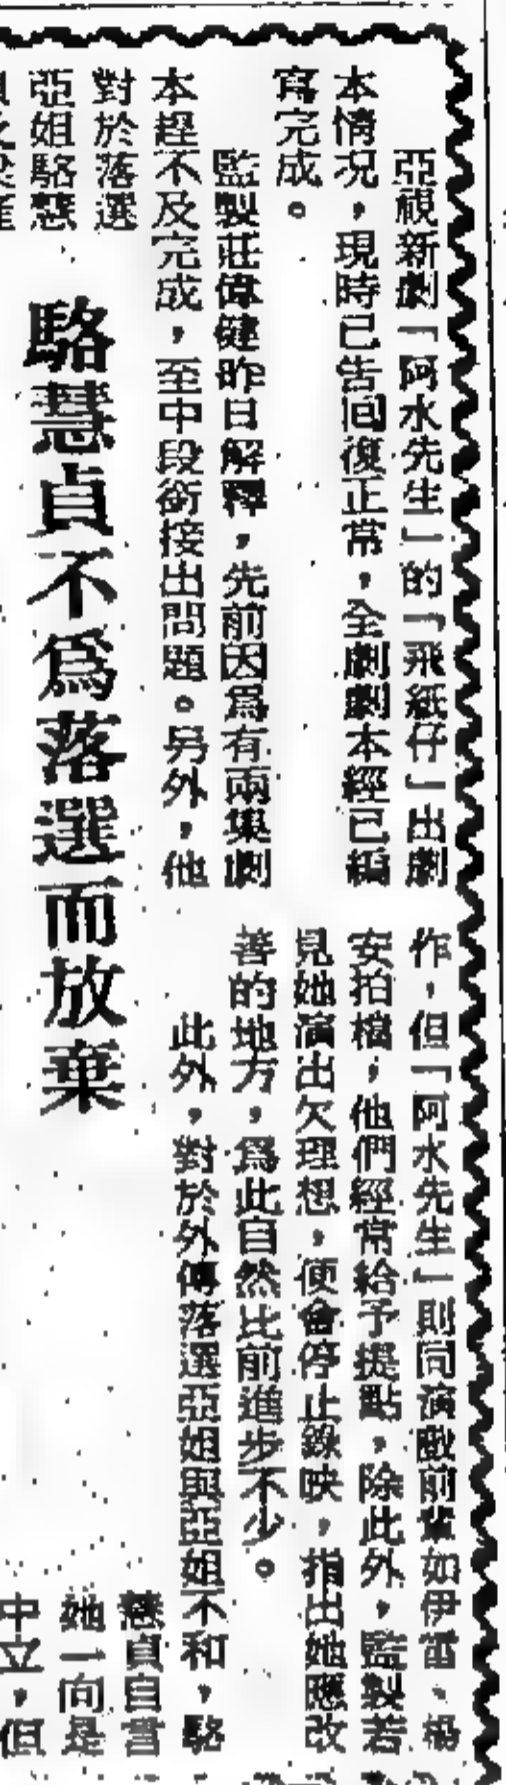 亞視新劇「阿水先生」的「飛紙仔」出劇
本情況，現時已告回復正常，全劇劇本經已編
寫完成。
監製莊偉健昨日解釋，先前因爲有兩集劇
本趕不及完成，至中段銜接出問題。另外，他
對於落選
亞姐駱慧
駱慧貞不爲落選而放棄
作，但「阿水先生」則同演戲前輩如伊雷、楊
安拍檔，他們經常給予提點，除此外，監製若
見她演出欠理想，便會停止錄映，指出她應改
善的地方，爲此自然比前進步不少。
此外，對於外傳落選亞姐與亞姐不和，駱
慧貞自言
她一向是
中立，但